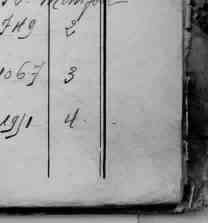 749 2
1067 3
1911 4